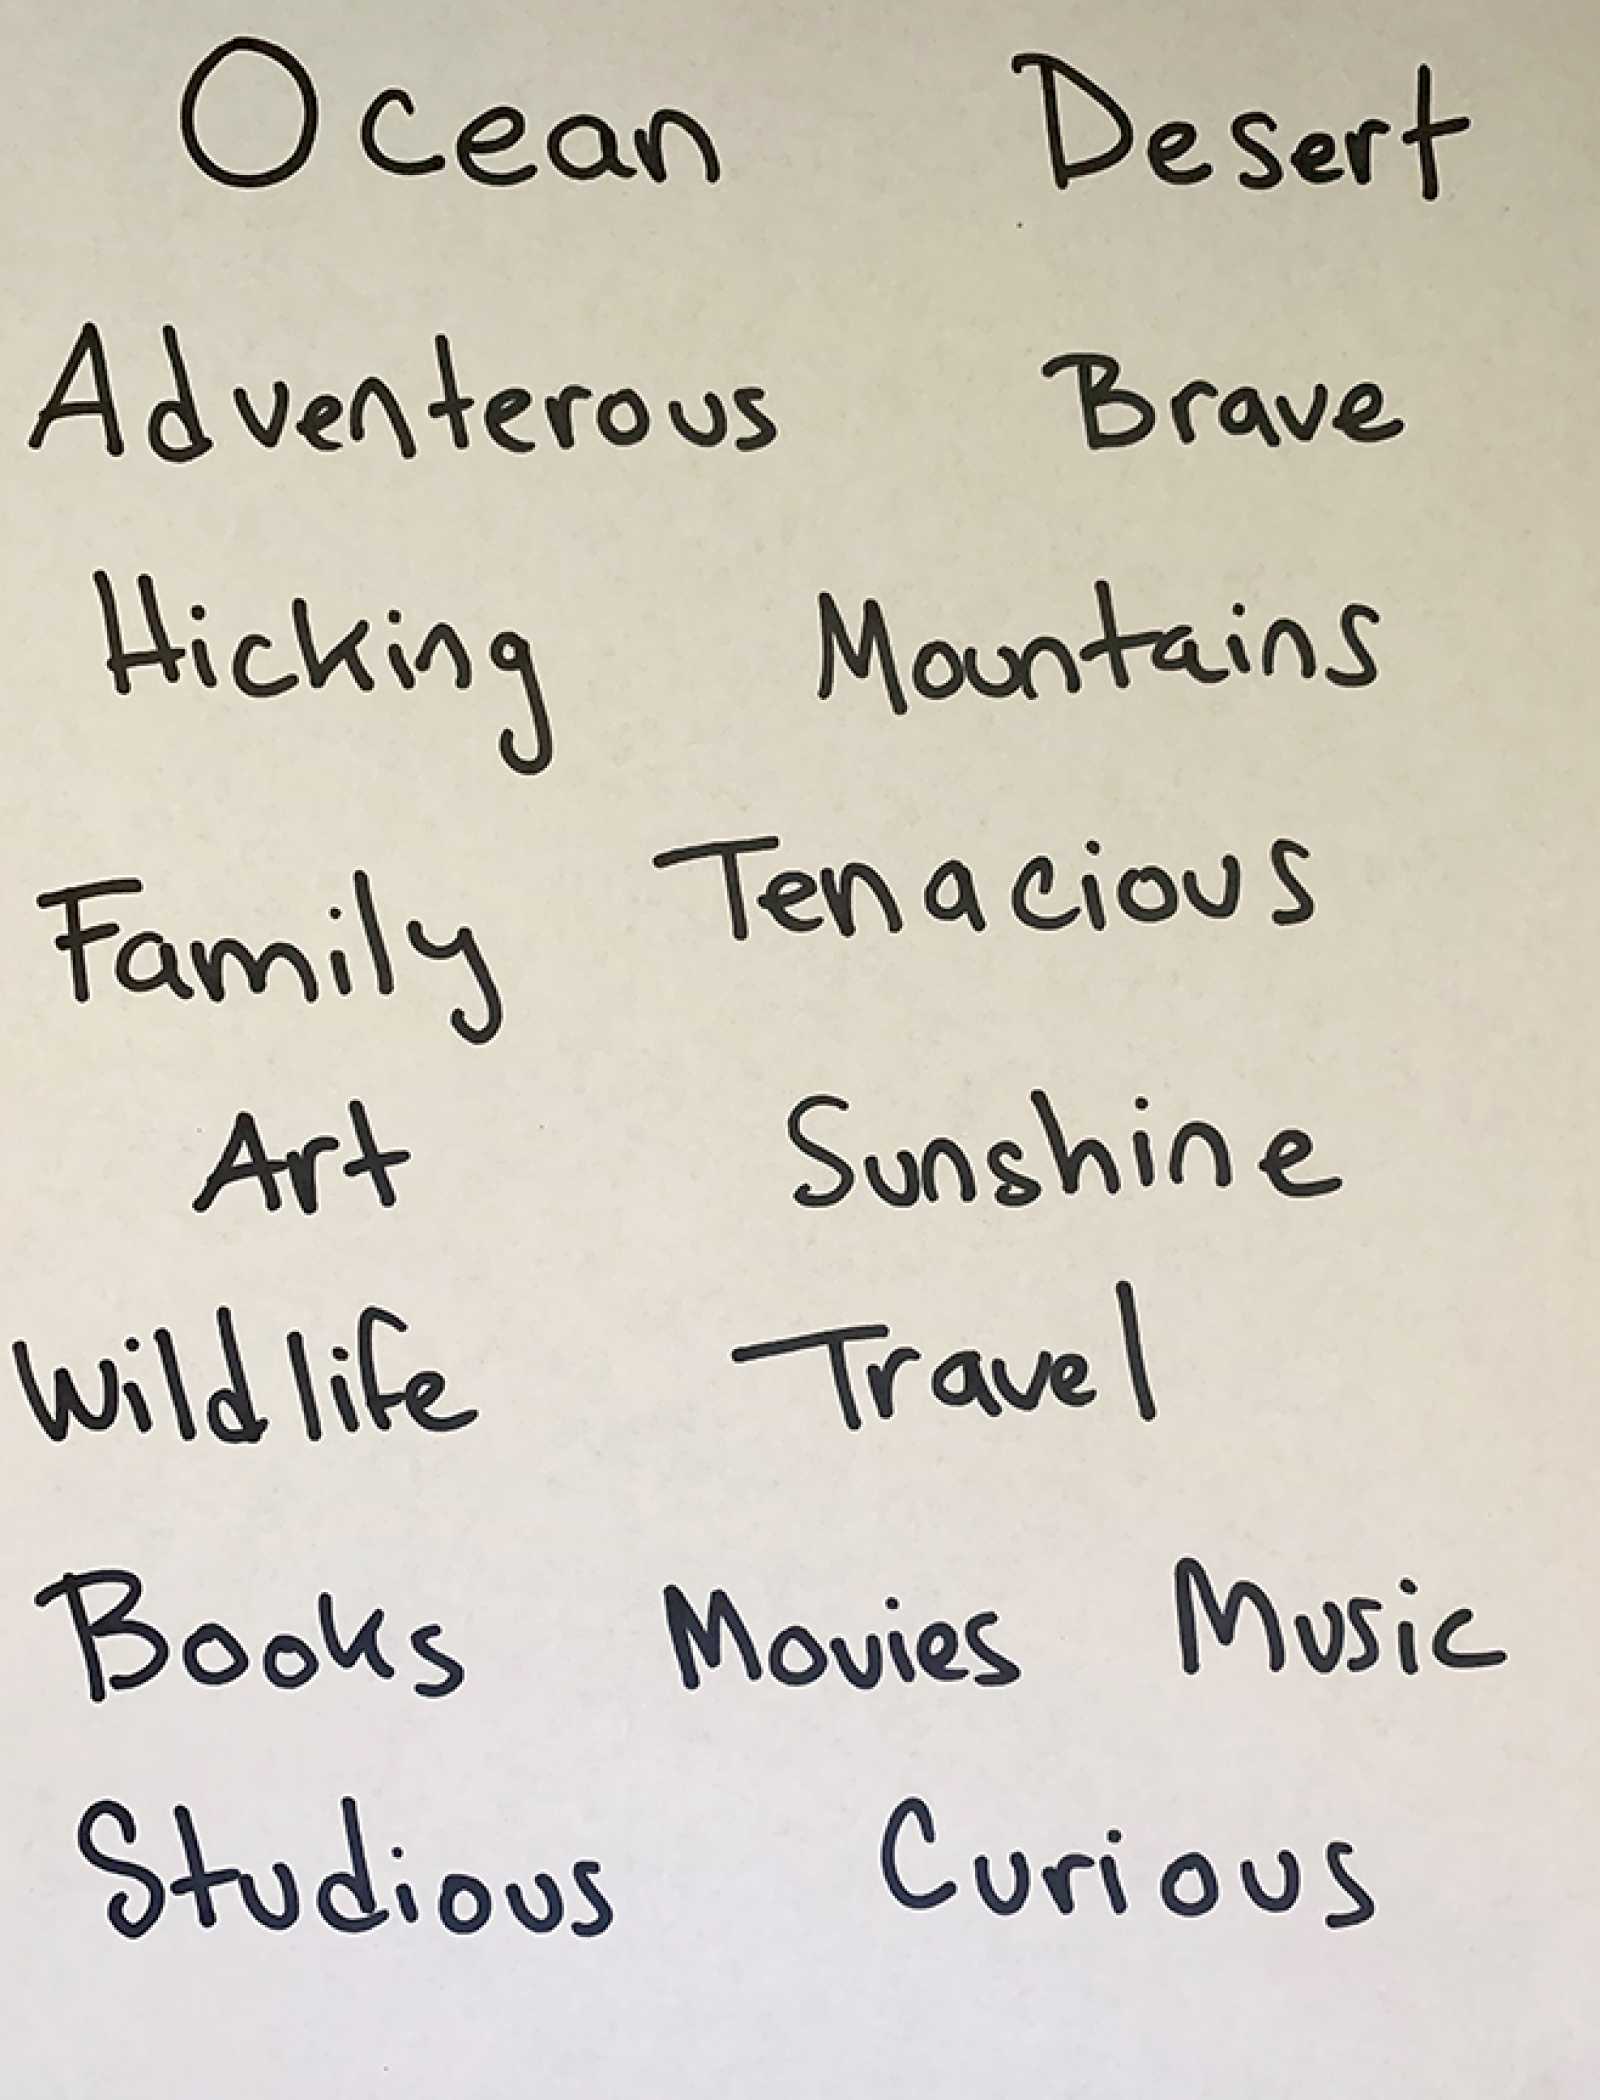 Ocean Desert
Adventerous Brave
Hicking Mountains
Family Tenacious
Art Sunshine
Wildlife Travel
Books Movies Music
Studious Curious